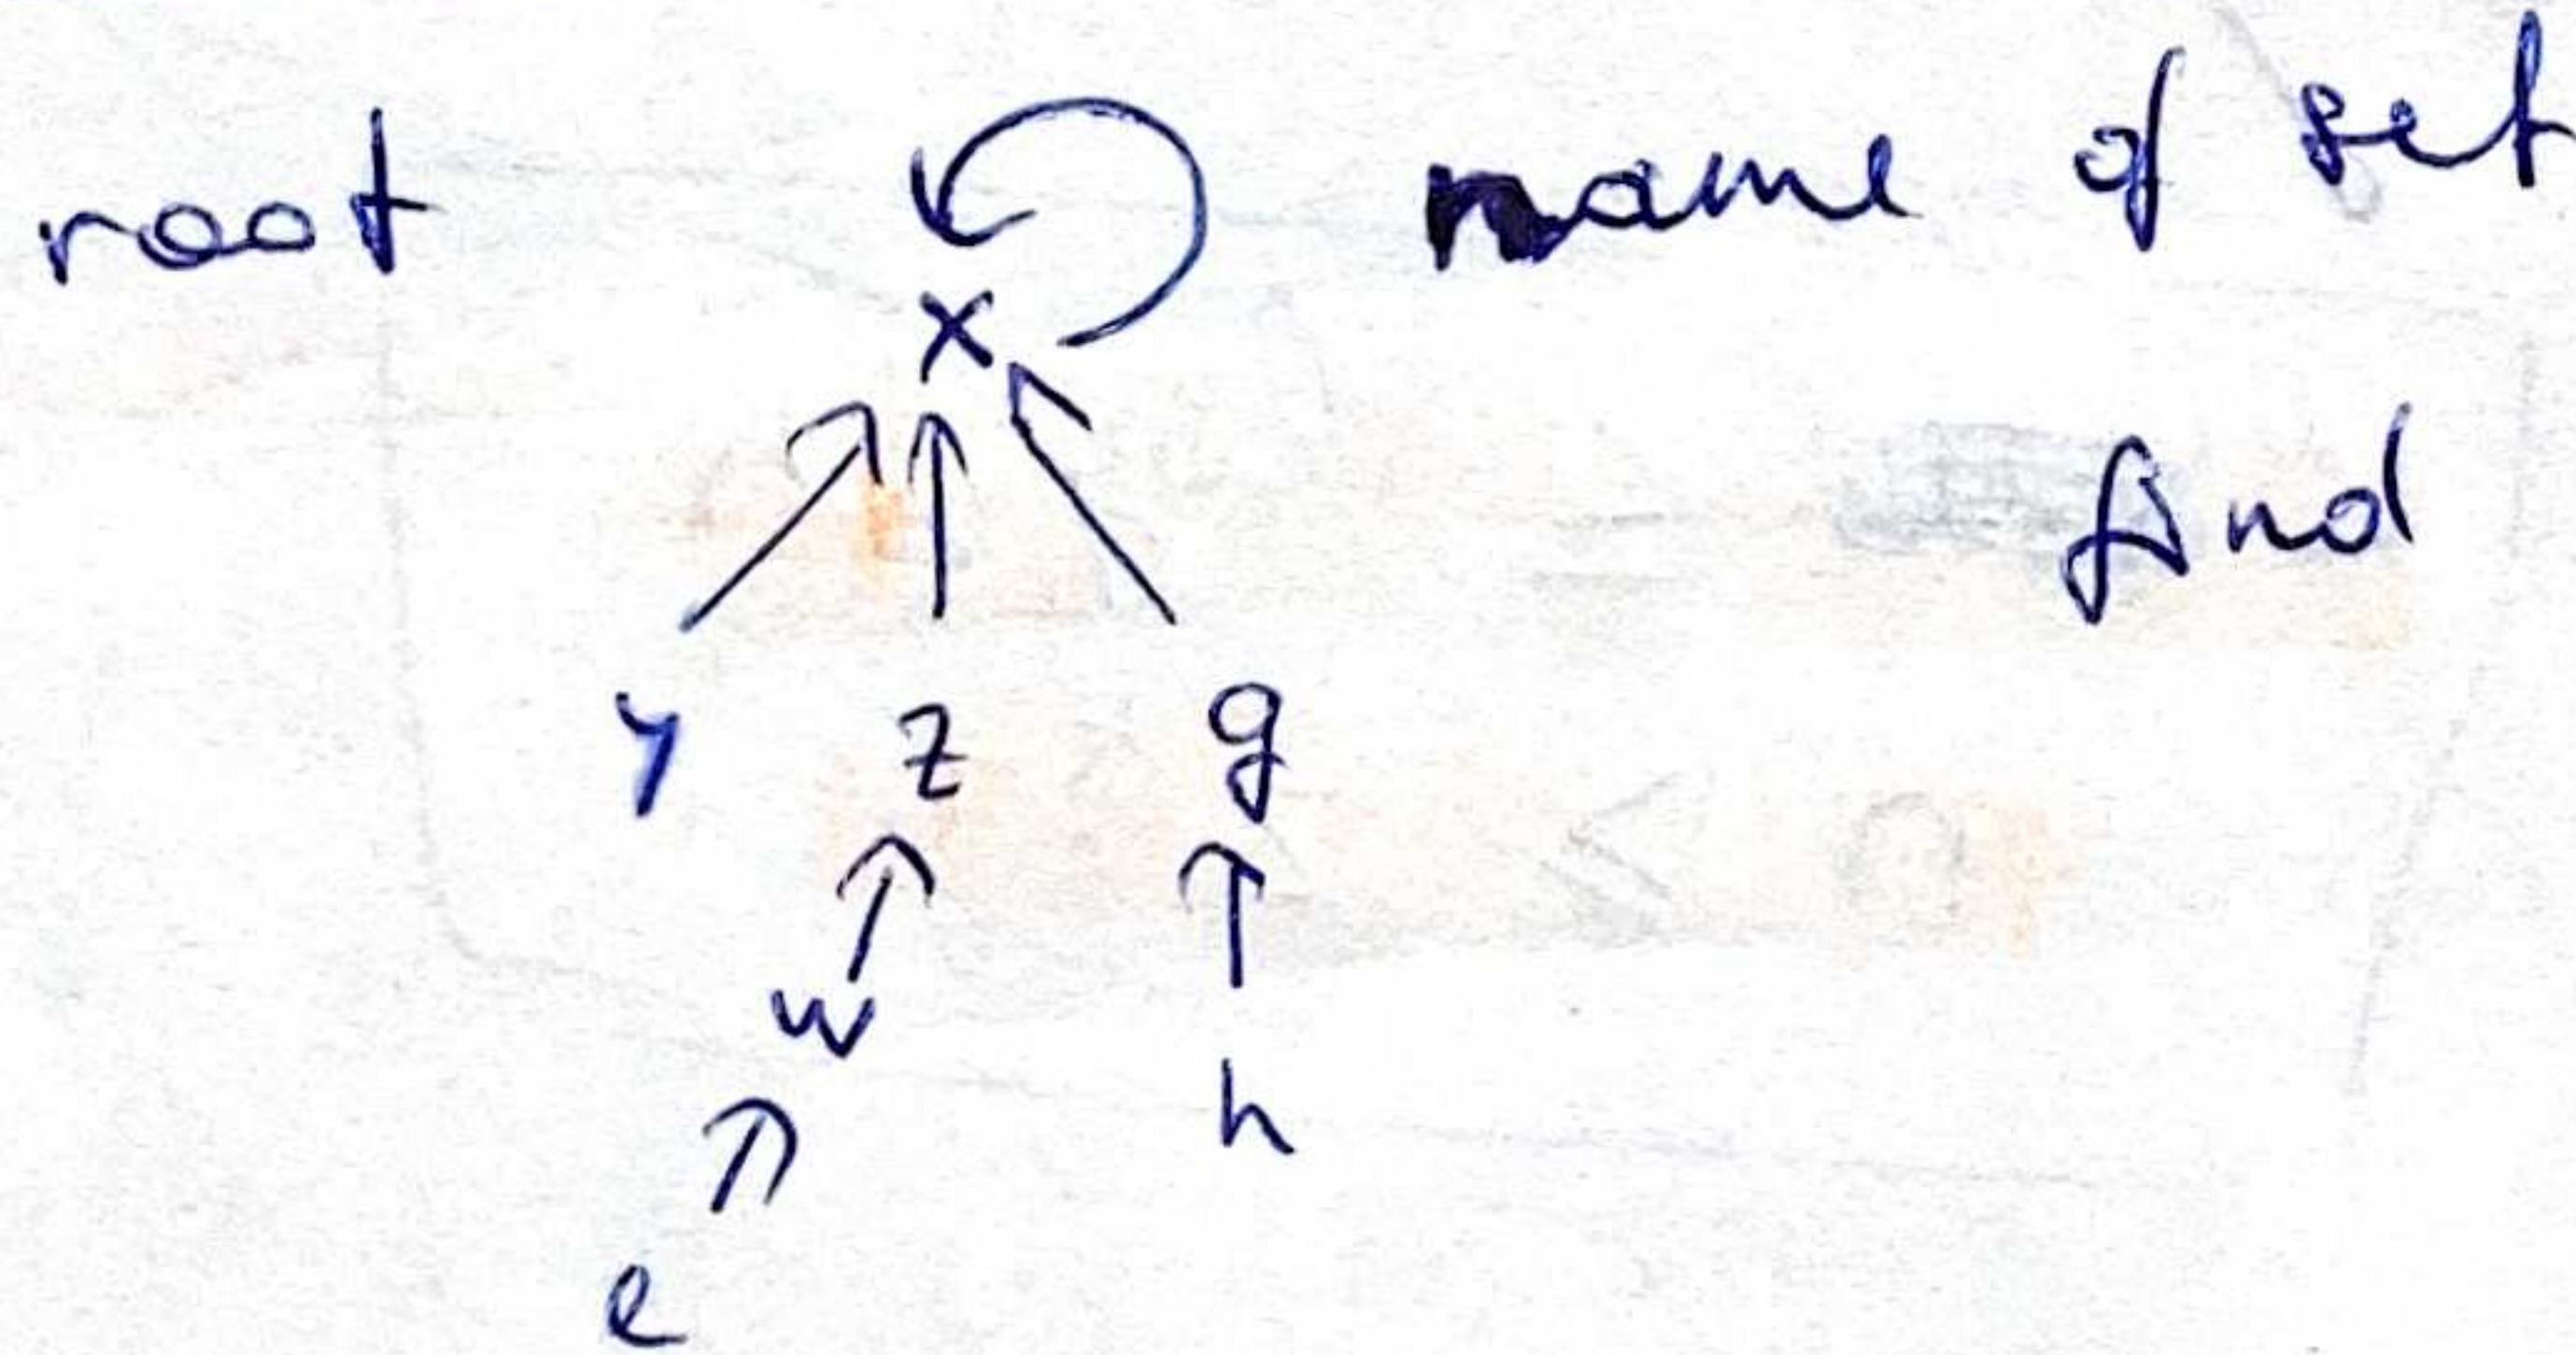 root name of set
x
find
y z g
w
h
e